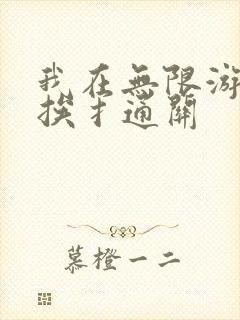 我在無限游
挨扌通關
慕橙一二